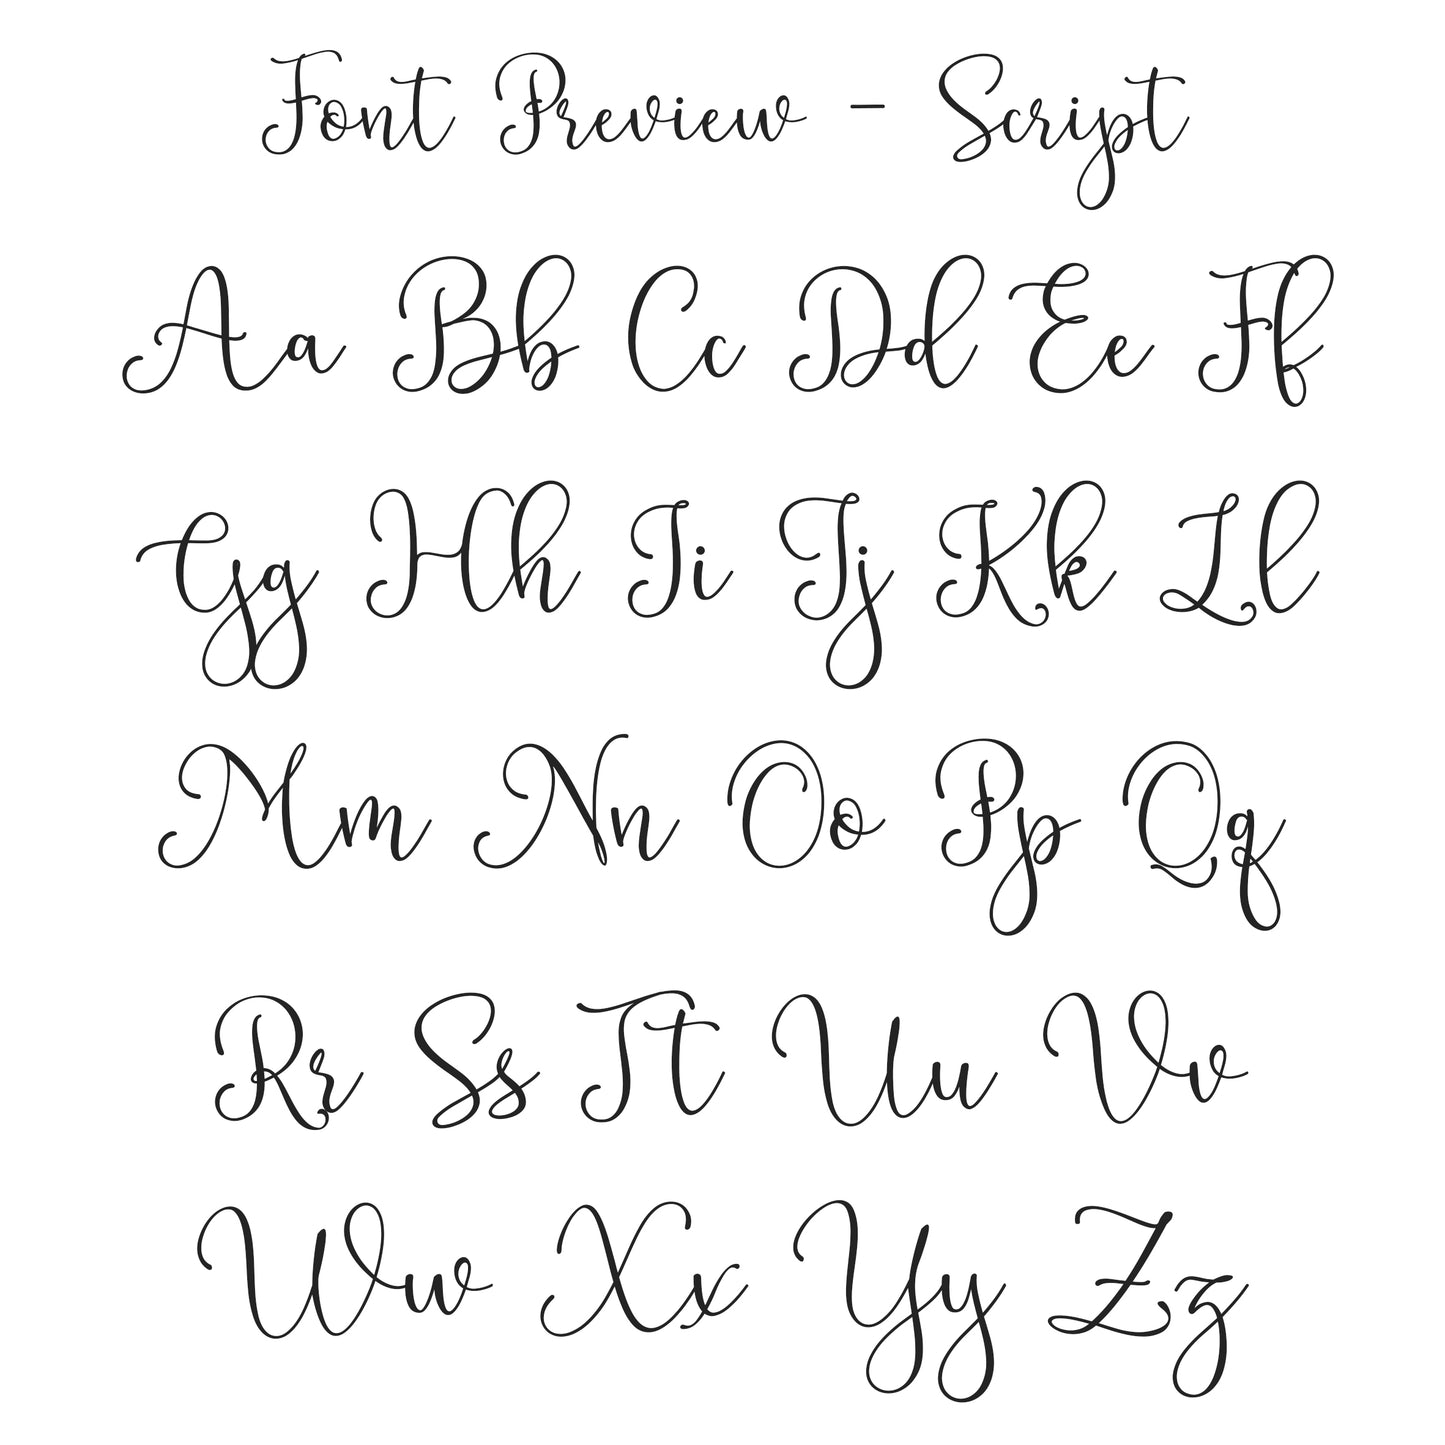 Font Preview - Script
Aa Bb Cc Dd Ee Ff
Gg Hh Ii Jj Kk Ll
Mm Nn Oo Pp Qq
Rr Ss Tt Uu Vv
Ww Xx Yy Zz